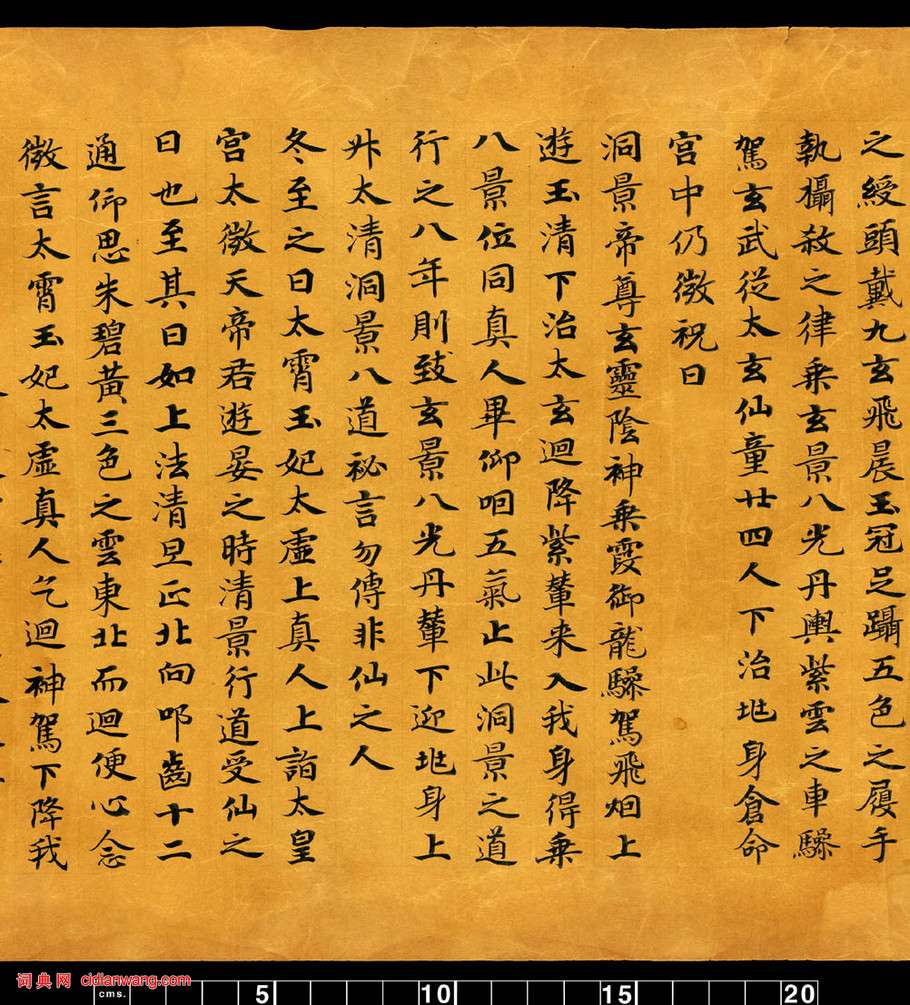 之綬頭戴九玄飛晨玉冠足躡五色之履手
執攝殺之律乘玄景八光丹輿紫雲之車驂
駕玄武從太玄仙童廿四人下治兆身倉命
宮中仍微祝曰
洞景帝尊玄靈陰神乘霞御龍驂駕飛烟上
遊玉清下治太玄迴降紫輦来入我身得乗
八景位同真人畢仰咽五氣止此洞景之道
行之八年則致玄景八光丹輦下迎兆身上
升太清洞景八道祕言勿傳非仙之人
冬至之日太霄玉妃太虛上真人上詣太皇
宮太微天帝君遊晏之時清景行道受仙之
日也至其日如上法清旦正北向叩齒十二
通仰思朱碧黃三色之雲東北而迴便心念
微言太霄玉妃太虛真人乞迴神駕下降我
词典网 cidianwang.com
cms. 5 10 15 20